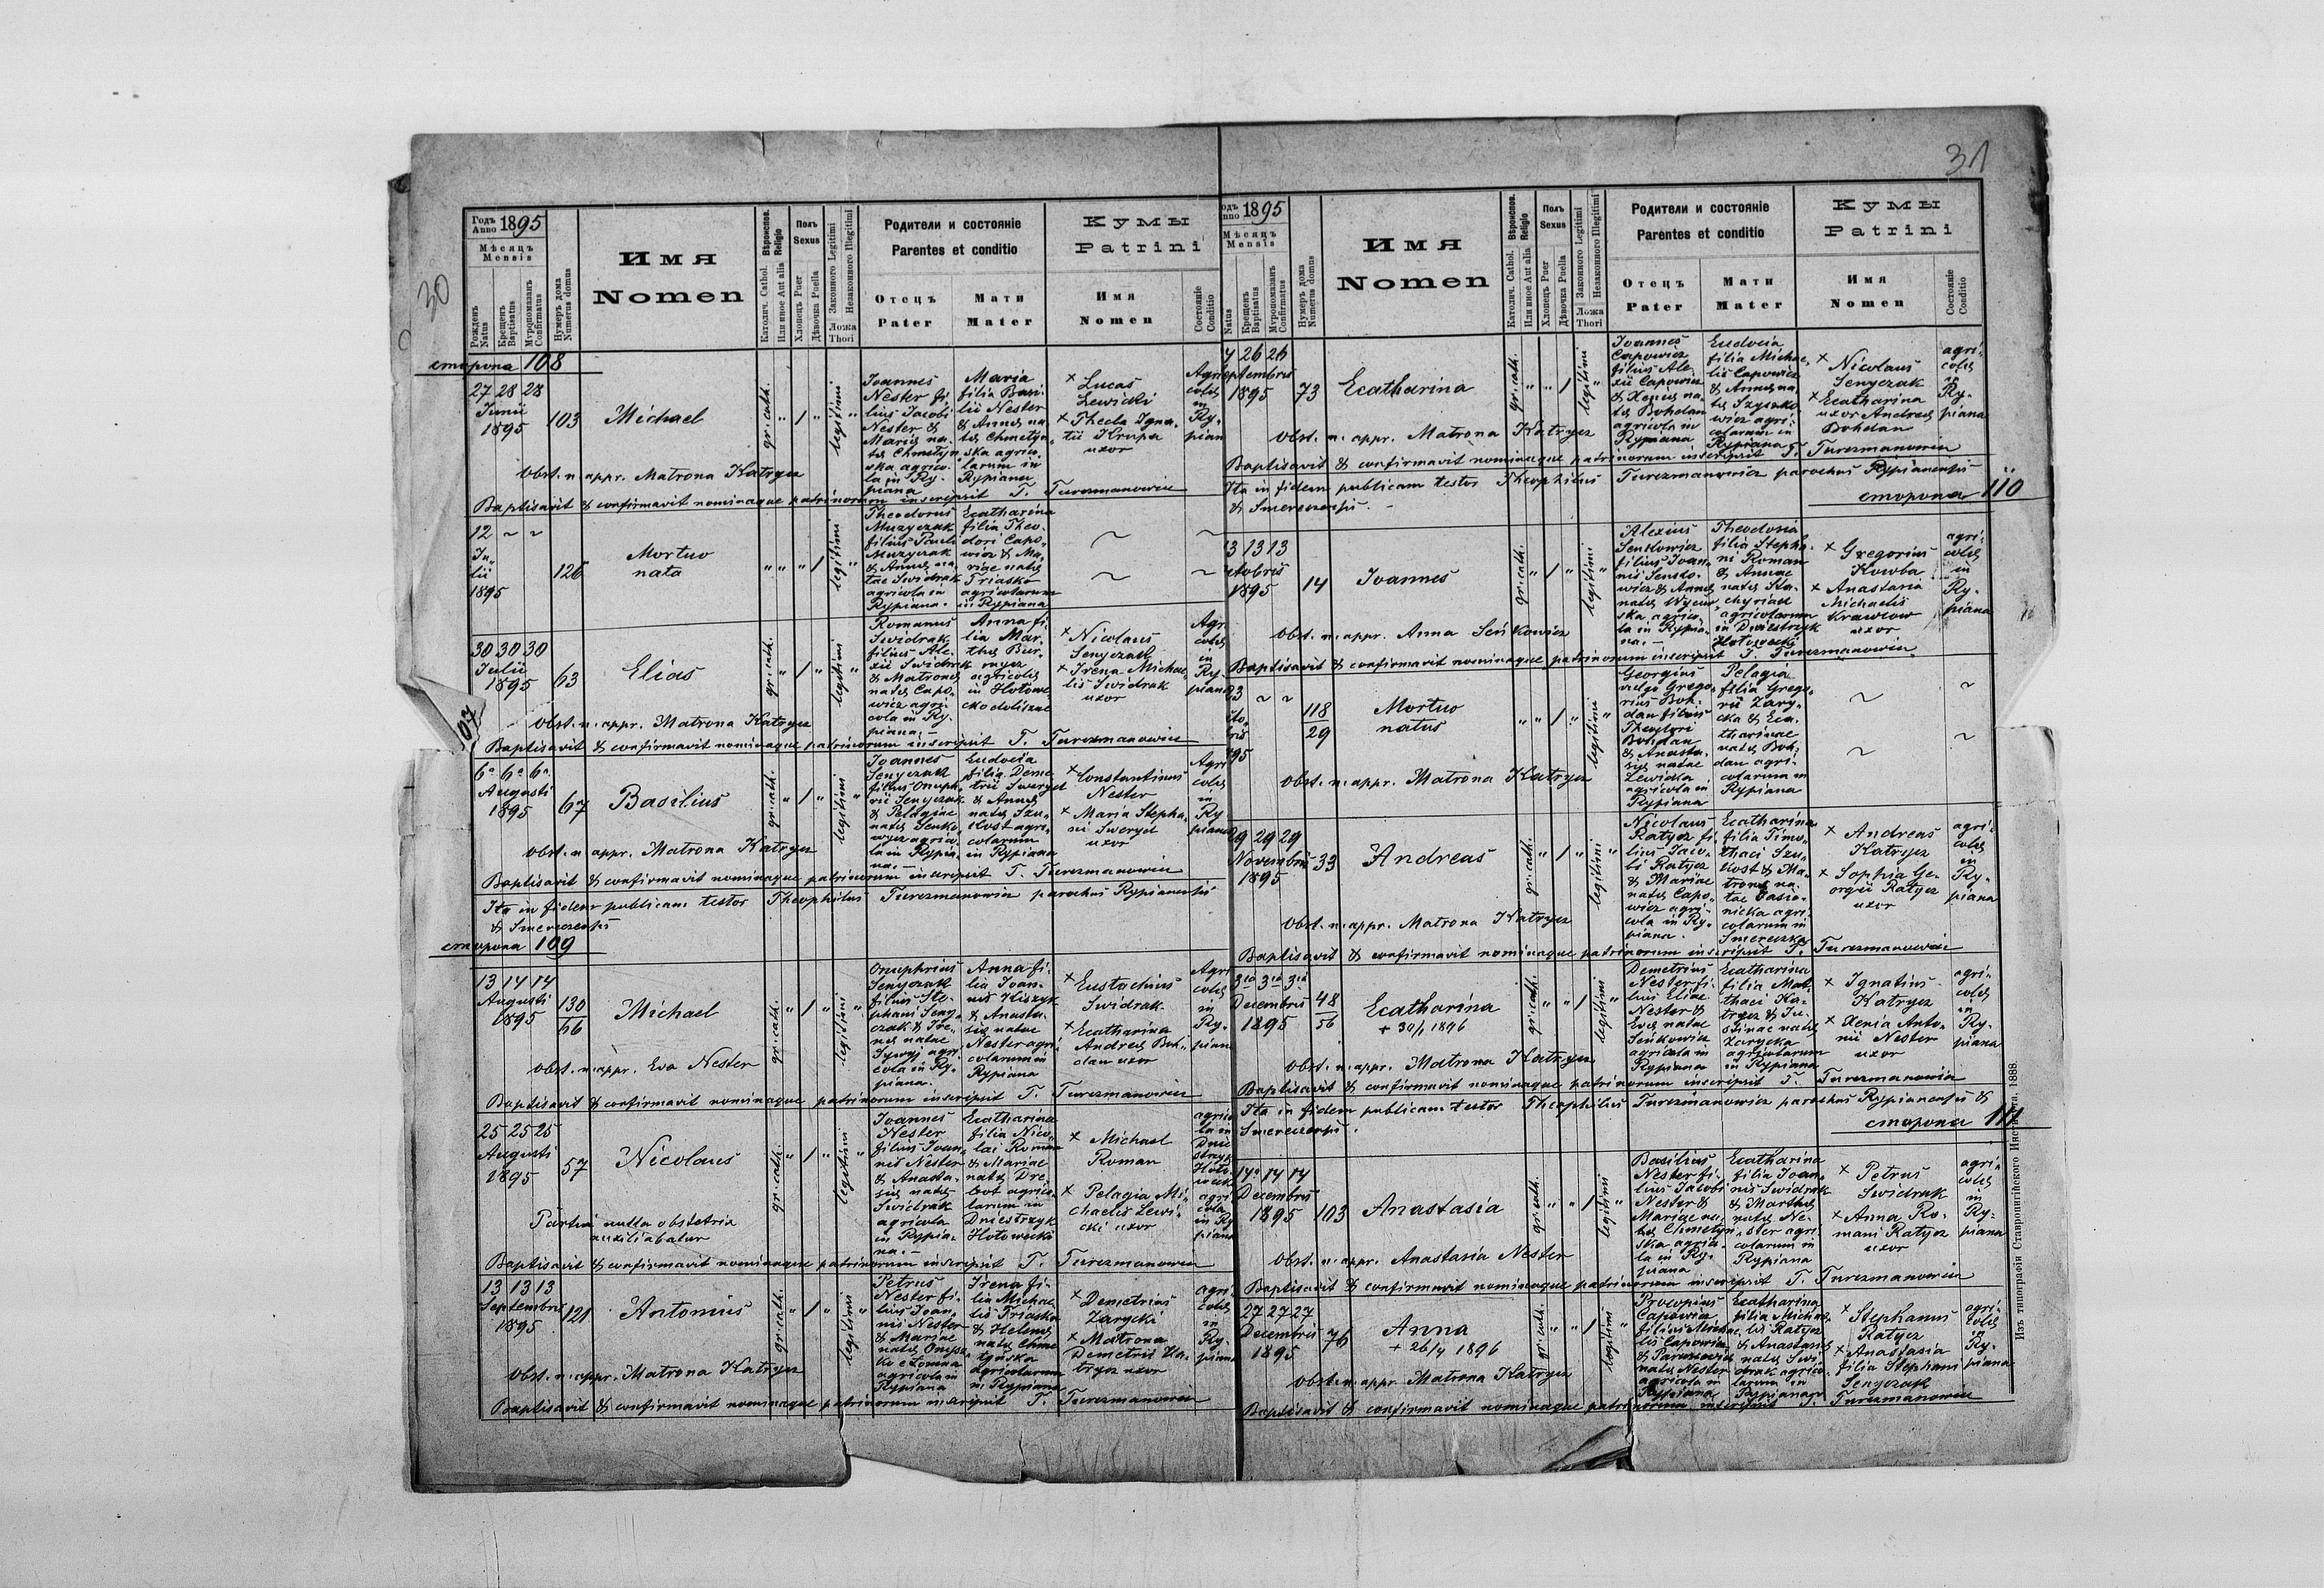 31
30
Годъ Anno 1895
Мѣсяцъ Mensis
Рожденъ Natus
Крещенъ Baptisatus
Муропомазанъ Confirmatus
Нумеръ дома Numerus domus
Имя
Nomen
Вѣроиспов. Religio
Католич. Cathol.
Или иное Aut alia
Полъ Sexus
Хлопецъ Puer
Дѣвочка Puella
Законного Legitimi
Незаконного Illegitimi
Ложа Thori
Родители и состояніе
Parentes et conditio
Отецъ Pater
Мати Mater
Кумы
Patrini
Имя Nomen
Состояніе Conditio
сторона 108
27 28 28
Junii
1895
103
Michael
gr. cath.
legitimi
Joannes
Nester fi-
lius Jacobi
Nester &
Mariae na-
tae Chmetyn
ska agrico-
la in Ry-
piana
Maria
filia Basi-
lii Nester
& Annae na-
tae Chmetyn-
ska agrico-
larum in
Rypiana
+ Lucas
Lewicki
+ Thecla Igna-
tii Krupa
uxor
Agri
colae
in
Ry-
pian
Obst. n. appr. Matrona Katrycz
Baptisavit & confirmavit nominaque patrinorum inscripsit T. Turczmanowicz
12 ~ ~
Ju-
lii
1895
126
Mortuo
nata
legitimi
Theodorus
Muzyczak
filius Pauli
Muzyczak
& Annae na-
tae Swidrak
agricola in
Rypiana.
Ecatharina
filia Theo-
dori Capo-
wicz & Ma-
riae natae
Triasko
agricolarum
in Rypiana
30 30 30
Julii
1895
63
Elias
gr. cath.
legitimi
Romanus
Swidrak
filius Ale-
xii Swidrak
& Matronae
natae Capo-
wicz agri-
cola in Ry-
piana.
Anna fi-
lia Mar-
thae Bur-
mycz
agricolae
in Hotowe
cko doliszne
+ Nicolaus
Senyczak
+ Irena Michae
lis Swidrak
uxor
Agr
colae
in
Ry-
piana
Obst. n. appr. Matrona Katrycz
Baptisavit & confirmavit nominaque patrinorum inscripsit T. Turczmanowicz
107
6a 6a 6a
Augusti
1895
67
Basilius
gr. cath.
legitimi
Joannes
Senyczak
filius Onuph-
rii Senyczak
& Pelagiae
natae Senko-
wycz agrico-
la in Rypia-
na.
Eudocia
filia Deme
trii Sweryd
& Annae
natae Szu-
kost agri-
colarum
in Rypiana
+ Constantinus
Nester
+ Maria Stepha-
ni Sweryd
uxor
Agri
colae
in
Ry
piana
Obst. n. appr. Matrona Katrycz
Baptisavit & confirmavit nominaque patrinorum inscripsit T. Turczmanowicz
Ita in fidem publicam testor Theophilus Turczmanowicz parochus Rypianensis
& Smereczensis
сторона 109
13 14 14
Augusti
1895
130
66
Michael
gr. cath.
legitimi
Onuphrius
Senyczak
filius Ste-
phani Seny-
czak & Ire-
nae natae
agri-
cola in Ry-
piana.
Anna fi-
lia Joan-
nis Kiszyk
& Anasta-
siae natae
Nester agri-
colarum in
Rypiana
+ Eustachius
Swidrak
+ Ecatharina
Andreae Boh-
dan uxor
Agri
colae
in
Ry-
pian
Obst. n. appr. Eva Nester
Baptisavit & confirmavit nominaque patrinorum inscripsit T. Turczmanowicz
25 25 25
Augusti
1895
57
Nicolaus
gr. cath.
legitimi
Joannes
Nester
filius Joan-
nis Nester
& Anasta-
siae natae
Swidrak
agricola
in Rypia-
na.
Ecatharina
filia Nico-
lai Roman
& Mariae
natae Dre-
bot agrico-
larum in
Dniestrzyk
Hotowecki
+ Michael
Roman
+ Pelagia Mi-
chaelis Lewi-
cki uxor
agrico
la in
Dnie
strzyk
Hoto
wecki
agri
cola
in Ry
piana
Partui nulla obstetrix
auxiliabatur
Baptisavit & confirmavit nominaque patrinorum inscripsit T. Turczmanowicz
13 13 13
Septembris
1895
121
Antonius
gr. cath.
legitimi
Petrus
Nester fi-
lius Joan-
nis Nester
& Mariae
natae
ko e Lomna
agricola in
Rypiana
Irena fi-
lia Michae-
lis Triasko
& Helenae
natae Chme
tynska
agricolarum
in Rypiana
+ Demetrius
Zarycki
+ Matrona
Demetrii Ka-
trycz uxor
agri-
colae
in
Ry-
piana
Obst. n. appr. Matrona Katrycz
Baptisavit & confirmavit nominaque patrinorum inscripsit T. Turczmanowicz
1895
Мѣсяцъ Mensis
Natus
Крещенъ Baptisatus
Муропомазанъ Confirmatus
Нумеръ дома Numerus domus
Имя
Nomen
Вѣроиспов. Religio
Католич. Cathol.
Или иное Aut alia
Полъ Sexus
Хлопецъ Puer
Дѣвочка Puella
Законного Legitimi
Незаконного Illegitimi
Ложа Thori
Родители и состояніе
Parentes et conditio
Отецъ Pater
Мати Mater
Кумы
Patrini
Имя Nomen
Состояніе Conditio
26 26
eptembris
1895
73
Ecatharina
gr. cath.
legitimi
Joannes
Capowicz
filius Ale-
xii Capowicz
& Xeniae na-
tae Bohdan
agricola in
Rypiana
Eudocia
filia Michae-
lis Capowicz
& Annae na-
tae Szysko-
wicz agri-
colarum in
Rypiana
+ Nicolaus
Senyczak
+ Ecatharina
uxor Andreae
Bohdan
agri-
colae
in
Ry-
piana
Obst. n. appr. Matrona Katrycz
Baptisavit & confirmavit nominaque patrinorum inscripsit T. Turczmanowicz
Ita in fidem publicam testor Theophilus Turczmanowicz parochus Rypianensis
& Smereczensis.
сторона 110
3 13 13
ctobris
1895
14
Joannes
gr. cath.
legitimi
Alexius
Senkowicz
filius Joan-
nis Senko-
wicz & Annae
natae
ska agrico-
la in Rypia-
na.
Theodosia
filia Stepha-
ni Roman
& Annae
natae Sta-
chyriak
agricolarum
in Dniestrzyk
Hotowecki
+ Gregorius
Kowba
+ Anastasia
Michaelis
Krawciow
uxor
agri-
colae
in
Ry-
piana
Obst. n. appr. Anna Seńkowicz
Baptisavit & confirmavit nominaque patrinorum inscripsit T. Turczmanowicz
23 ~ ~
cto-
bris
895
118
29
Mortuo
natus
legitimi
Georgius
vulgo Grego-
rius Boh-
dan filius
Theodori
Bohdan
& Anasta-
siae natae
Lewicka
agricola in
Rypiana
Pelagia
filia Grego-
rii Zary-
cka & Eca-
tharinae
natae Boh-
dan agri-
colarum in
Rypiana
Obst. n. appr. Matrona Katrycz
29 29 29
Novembris
1895
33
Andreas
gr. cath.
legitimi
Nicolaus
Ratycz fi-
lius Jaco-
bi Ratycz
& Mariae
natae Capo-
wicz agri-
cola in Ry-
piana.
Ecatharina
filia Timo-
thaei Szu-
kost & Ma-
tronae na-
tae Wasio-
nicka agri-
colarum in
Smereczka
+ Andreas
Katrycz
+ Sophia Ge-
orgii Ratycz
uxor
agri-
colae
in
Ry-
piana
Obst. n. appr. Matrona Katrycz
Baptisavit & confirmavit nominaque patrinorum inscripsit T. Turczmanowicz
3tia 3tia 3tia
Decembris
1895
48
56
Ecatharina
+ 30/1 1896
gr. cath.
legitimi
Demetrius
Nester fi-
lius Eliae
Nester &
Evae natae
Seńkowicz
agricola in
Rypiana
Ecatharina
filia Mat-
thaei Ka-
trycz & Ju-
stinae natae
Zarycka
agricolarum
in Rypiana
+ Ignatius
Katrycz
+ Xenia Anto-
nii Nester
uxor
agri-
colae
in
Ry-
piana
Obst. n. appr. Matrona Katrycz
Baptisavit & confirmavit nominaque patrinorum inscripsit T. Turczmanowicz
Ita in fidem publicam testor Theophilus Turczmanowicz parochus Rypianensis &
Smereczensis.
сторона 111
14 14 14
Decembris
1895
103
Anastasia
gr. cath.
legitimi
Basilius
Nester fi-
lius Jacobi
Nester &
Mariae na-
tae Chmetyn-
ska agrico-
la in Ry-
piana
Ecatharina
filia Joan-
nis Swidrak
& Marthae
natae Ne-
ster agri-
colarum in
Rypiana
+ Petrus
Swidrak
+ Anna Ro-
mani Ratycz
uxor
agri-
colae
in
Ry-
piana
Obst. n. appr. Anastasia Nester
Baptisavit & confirmavit nominaque patrinorum inscripsit T. Turczmanowicz
27 27 27
Decembris
1895
76
Anna
+ 26/4 1896
gr. cath.
legitimi
Procopius
Capowicz
filius Micha-
lis Capowicz
& Parasceviae
natae Nester
agricola in
Rypiana
Ecatharina
filia Michae-
lis Ratycz
& Anastasiae
natae Swi-
drak agrico-
larum in
Rypiana
+ Stephanus
Ratycz
+ Anastasia
filia Stephani
Senyczak
agri-
colae
in
Ry-
piana
Obst. n. appr. Matrona Katrycz
Baptisavit & confirmavit nominaque patrinorum inscripsit T. Turczmanowicz
Изъ типографіи Ставропигійского Института. 1888